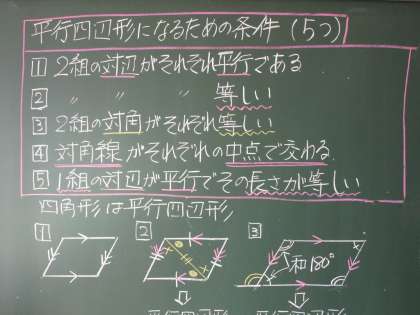 平行四辺形になるための条件(5つ)
1 2組の対辺がそれぞれ平行である
2 〃 〃 〃 等しい
3 2組の対角がそれぞれ等しい
4 対角線がそれぞれの中点で交わる
5 1組の対辺が平行でその長さが等しい
四角形は平行四辺形
1 2 3
和180°